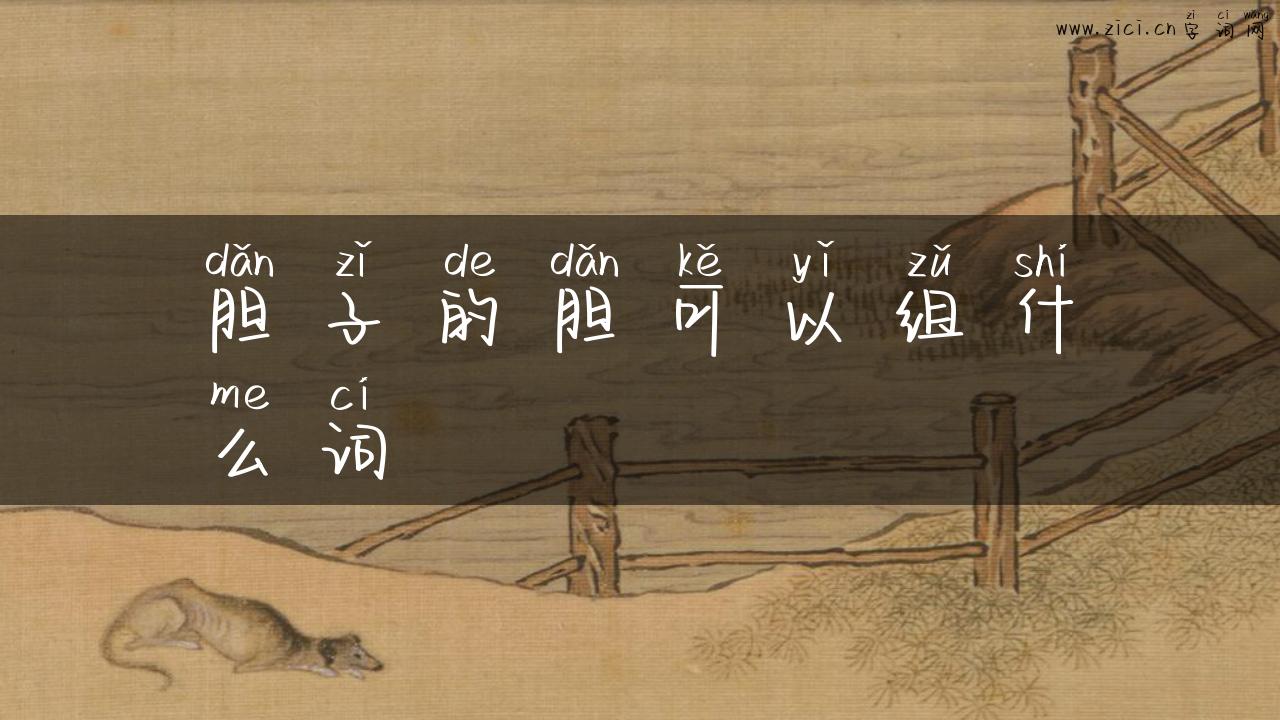 zi ci wang
www.zici.cn 字词网
dǎn zǐ de dǎn kě yǐ zǔ shí
胆子的胆可以组什
me cí
么词